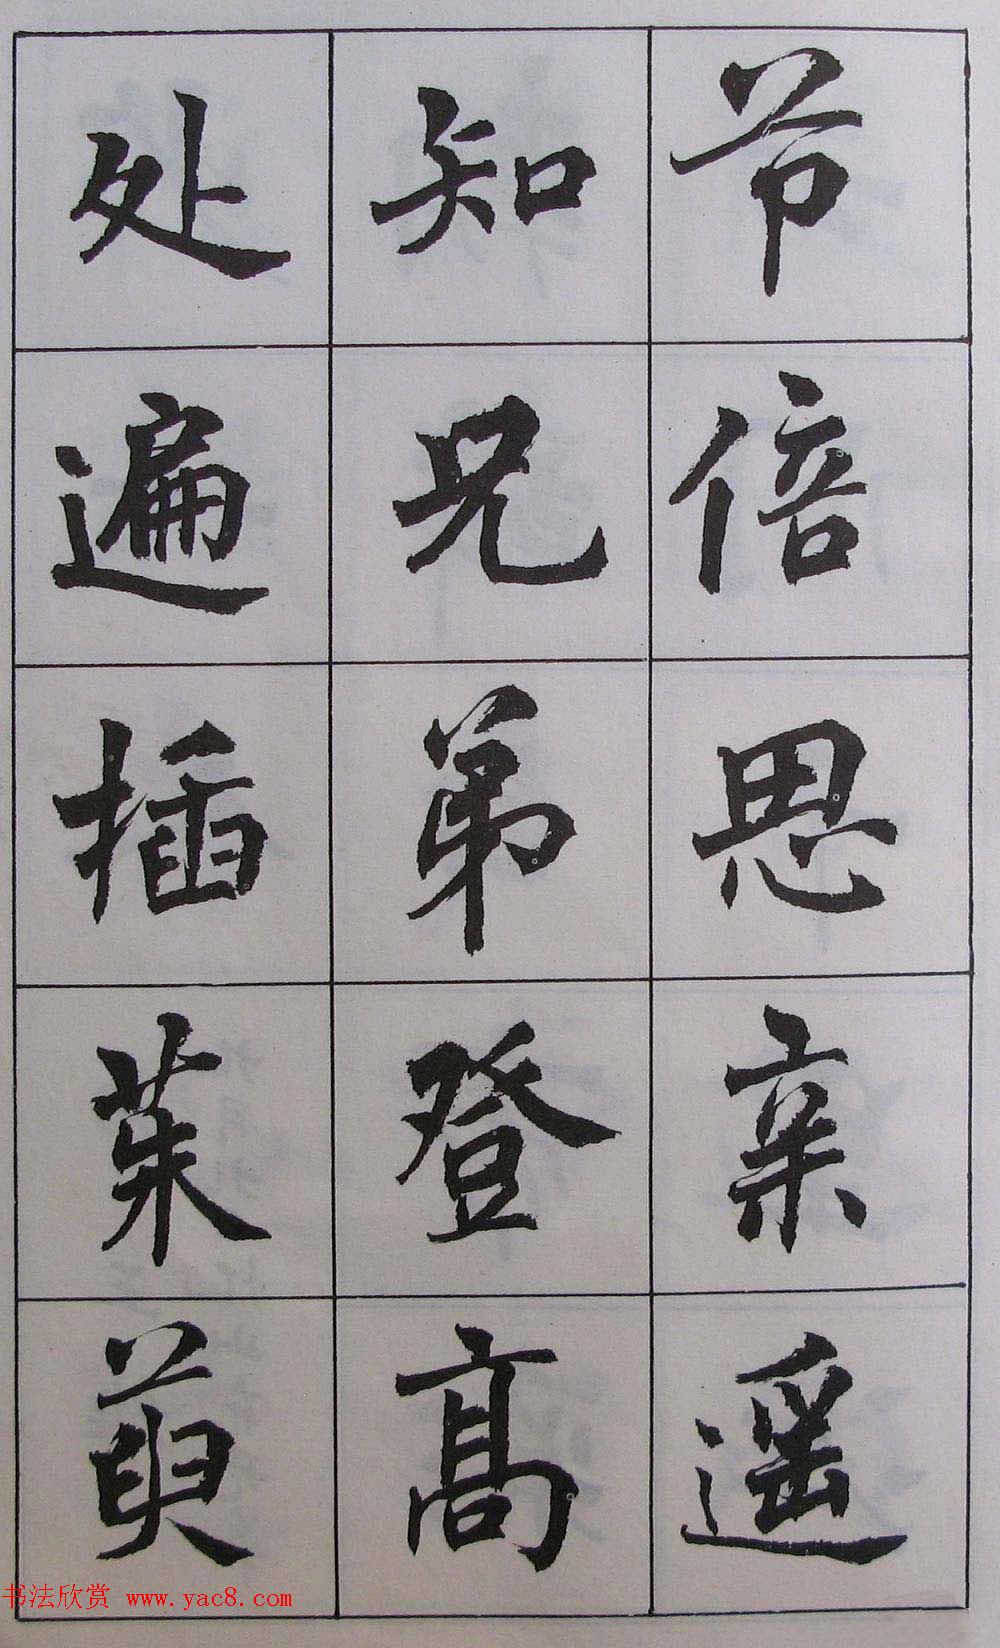 节倍思亲遥
知兄弟登高
处遍插茱萸
书法欣赏 www.yac8.com